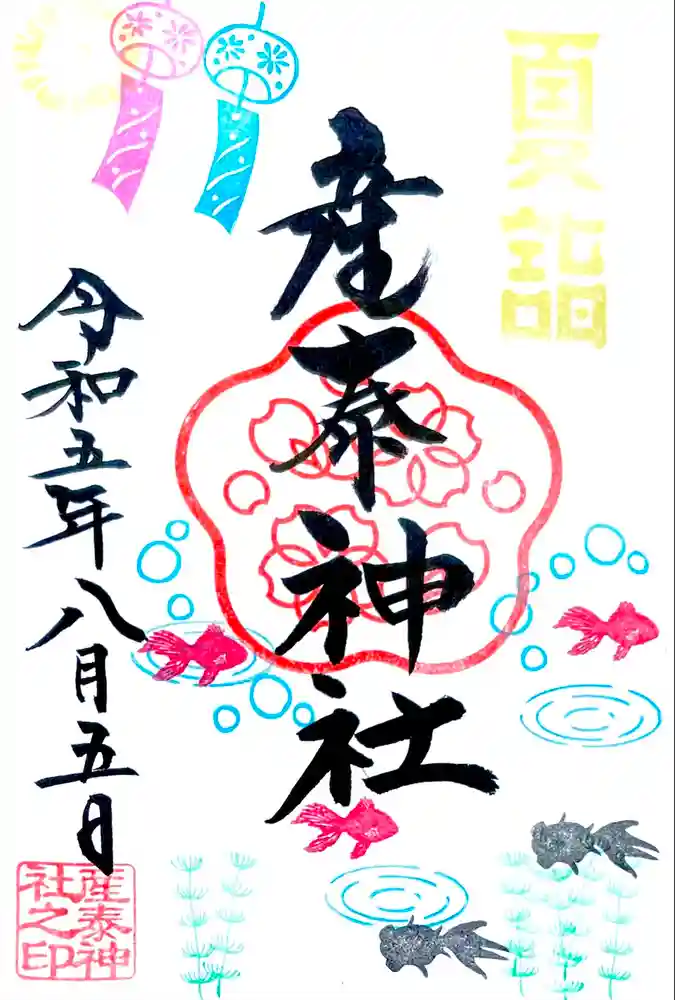 夏詣
産泰神社
令和五年八月五日
産泰神
社之印